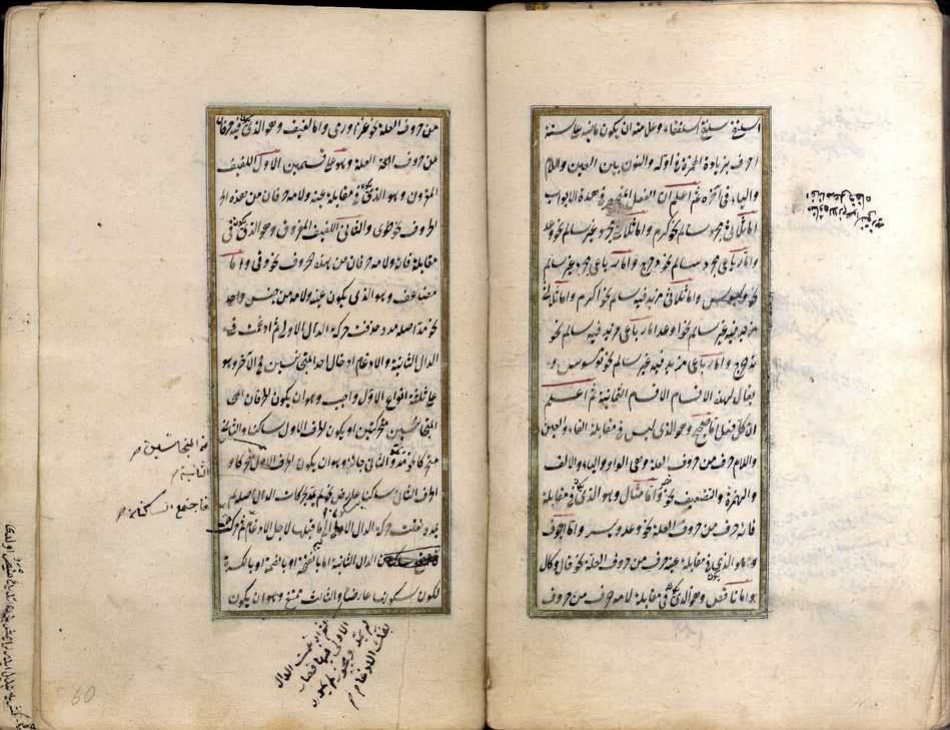 اسلنقى يسلنقى اسلنقاء وعلامته ان يكون ماضيه على ستة
احرف بزيادة الهمزة فى اوله والنون بين العين واللام
والياء فى آخره ثم اعلم ان الفعل المنحصر فى هذه الابواب
اما ثلاثى مجرد سالم نحو كرم واما ثلاثى مجرد غير سالم نحو وعد
واما رباعى مجرد سالم نحو دحرج واما رباعى مجرد غير سالم
نحو وسوس واما ثلاثى مزيد فيه سالم نحو اكرم واما ثلاثى
مزيد فيه غير سالم نحو اوعد واما رباعى مزيد فيه سالم نحو
تدحرج واما رباعى مزيد فيه غير سالم نحو توسوس و
يقال لهذه الاقسام الاقسام الثمانية ثم اعلم
ان كل فعل اما صحيح وهو الذى ليس فى مقابلة الفاء والعين
واللام حرف من حروف العلة وهى الواو والياء والالف
والهمزة والتضعيف نحو نصر واما مثال وهو الذى يكون فى مقابلة
فائه حرف من حروف العلة نحو وعد ويسر واما اجوف
وهو الذى يكون فى مقابلة عينه حرف من حروف العلة نحو قال وكال
واما ناقص وهو الذى يكون فى مقابلة لامه حرف من حروف
من حروف العلة نحو غزا ورمى واما لفيف وهو الذى يكون فيه حرفان
من حروف العلة وهو على قسمين الاول اللفيف
المقرون وهو الذى يكون فى مقابلة عينه ولامه حرفان من هذه
الحروف نحو طوى والثانى اللفيف المفروق وهو الذى يكون فى
مقابلة فائه ولامه حرفان من هذه الحروف نحو وقى واما
مضاعف وهو الذى يكون عينه ولامه من جنس واحد
نحو مد اصله مدد حذفت حركة الدال الاولى ثم ادغمت فى
الدال الثانية والادغام ادخال احد المتجانسين فى الآخر وهو
على ثلثة انواع الاول واجب وهو ان يكون الحرفان
المتجانسين متحركين او يكون الحرف الاول ساكنا والثانى
متحركا نحو مد والثانى جائز وهو ان يكون الحرف الاول متحركا و
الحرف الثانى ساكنا بسكون عارض نحو لم يمد بحركات الدال اصله لم
يمدد نقلت حركة الدال الاولى الى ما قبلها لاجل الادغام ثم حركت
الدال الثانية اما بالضمة او بالفتحة او بالكسرة
لكون سكونها عارضا والثالث ممتنع وهو ان يكون
من المتجانسين
الثانية
فاجتمع الساكنان
ثم ادغمت الدال
الاولى فيها فصار
لم يمد ويجوز لم يمدد
بفك الادغام
60